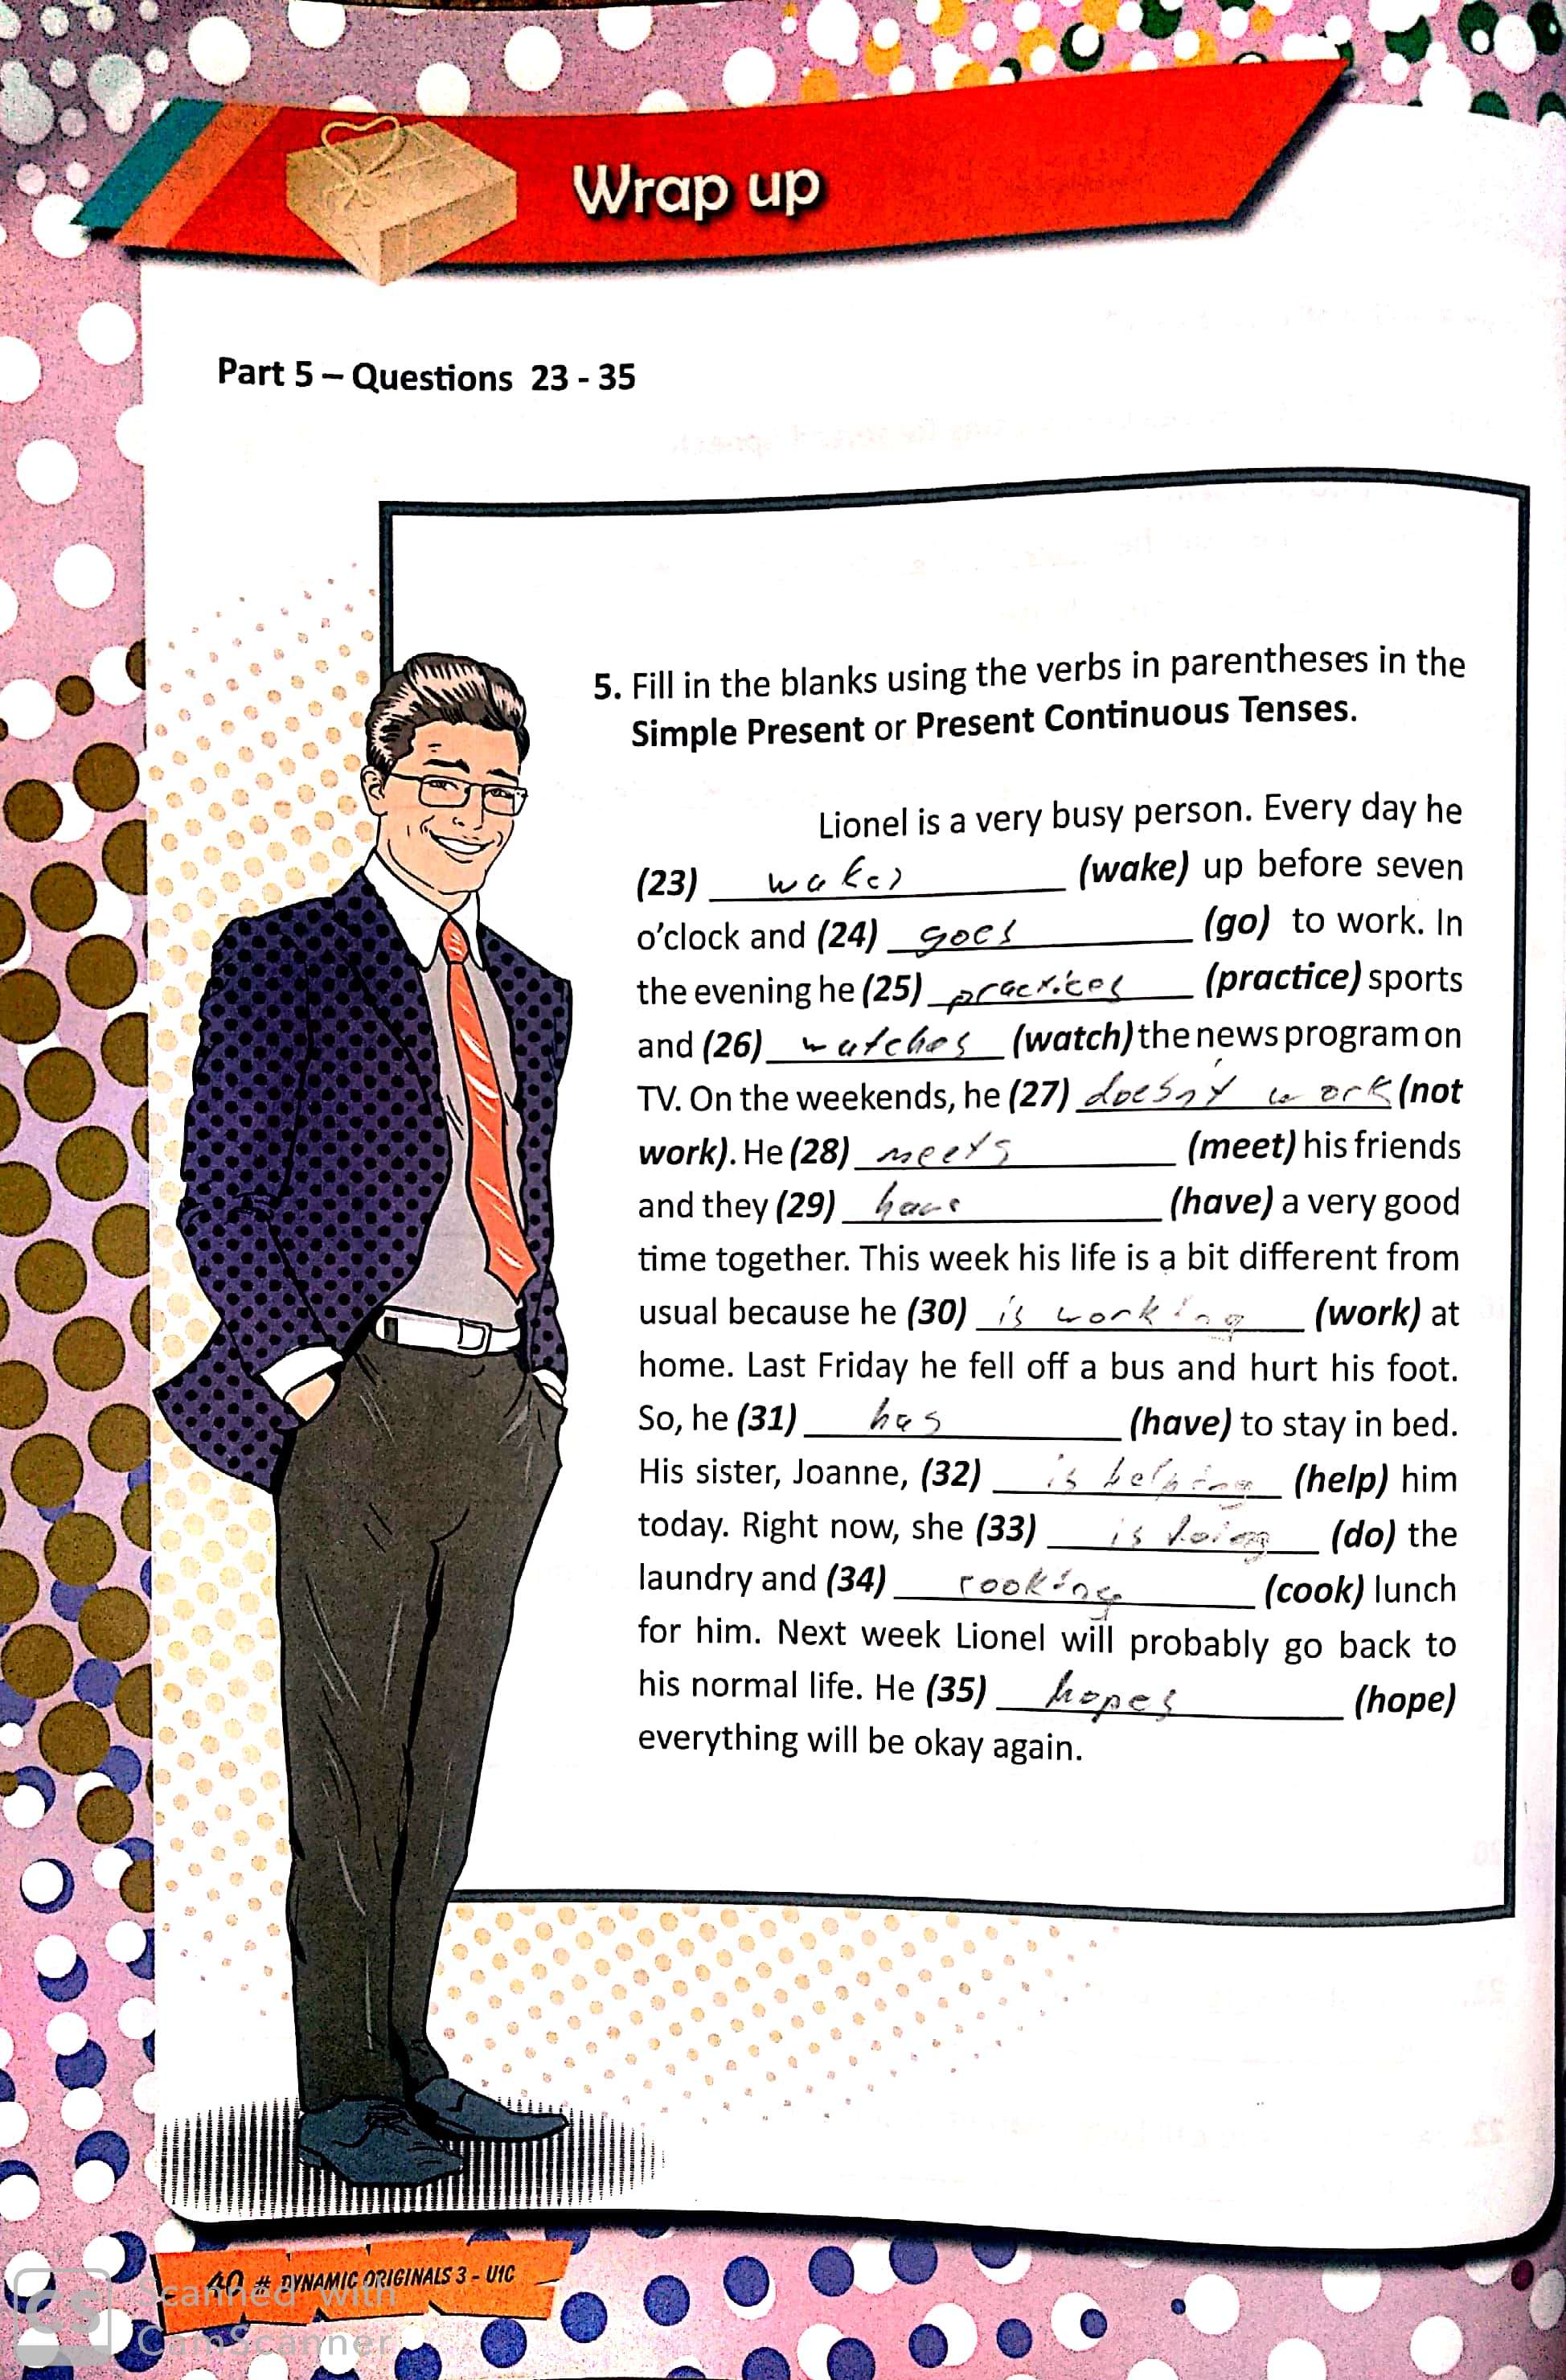 Wrap up
Part 5 – Questions 23 - 35
5. Fill in the blanks using the verbs in parentheses in the
Simple Present or Present Continuous Tenses.
Lionel is a very busy person. Every day he
(23) wakes (wake) up before seven
o'clock and (24) goes (go) to work. In
the evening he (25) practices (practice) sports
and (26) watches (watch) the news program on
TV. On the weekends, he (27) doesn't work (not
work). He (28) meets (meet) his friends
and they (29) have (have) a very good
time together. This week his life is a bit different from
usual because he (30) is working (work) at
home. Last Friday he fell off a bus and hurt his foot.
So, he (31) has (have) to stay in bed.
His sister, Joanne, (32) is helping (help) him
today. Right now, she (33) is doing (do) the
laundry and (34) cooking (cook) lunch
for him. Next week Lionel will probably go back to
his normal life. He (35) hopes (hope)
everything will be okay again.
40 # DYNAMIC ORIGINALS 3 - U1C
CS Scanned with
CamScanner